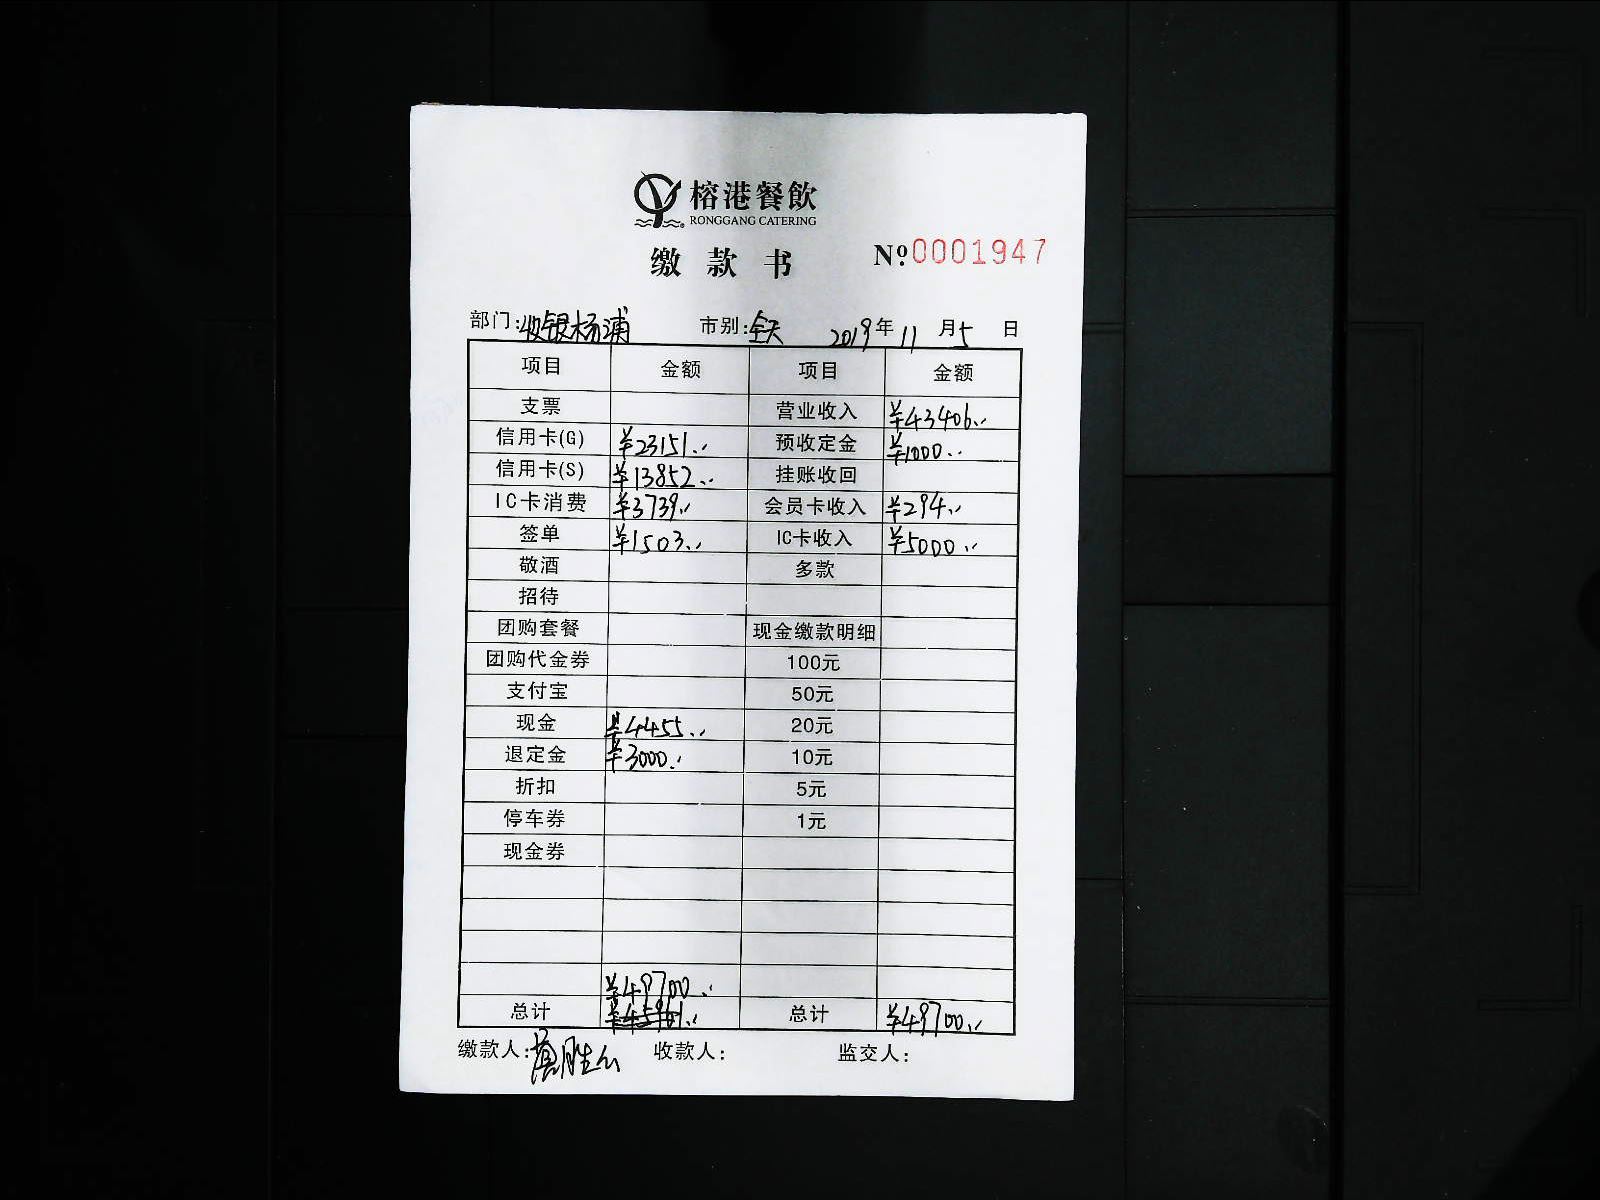 榕港餐飲
RONGGANG CATERING
缴款书 №0001947
部门:收银杨浦 市别:全天 2019年11月5日
项目 金额 项目 金额
支票 营业收入 ¥43406.
信用卡(G) ¥23151. 预收定金 ¥1000.
信用卡(S) ¥13852. 挂账收回
IC卡消费 ¥3739. 会员卡收入 ¥294.
签单 ¥1503. IC卡收入 ¥5000.
敬酒 多款
招待
团购套餐 现金缴款明细
团购代金券 100元
支付宝 50元
现金 ¥4455. 20元
退定金 ¥3000. 10元
折扣 5元
停车券 1元
现金券
¥49700.
总计 总计 ¥49700.
缴款人: 收款人: 监交人: